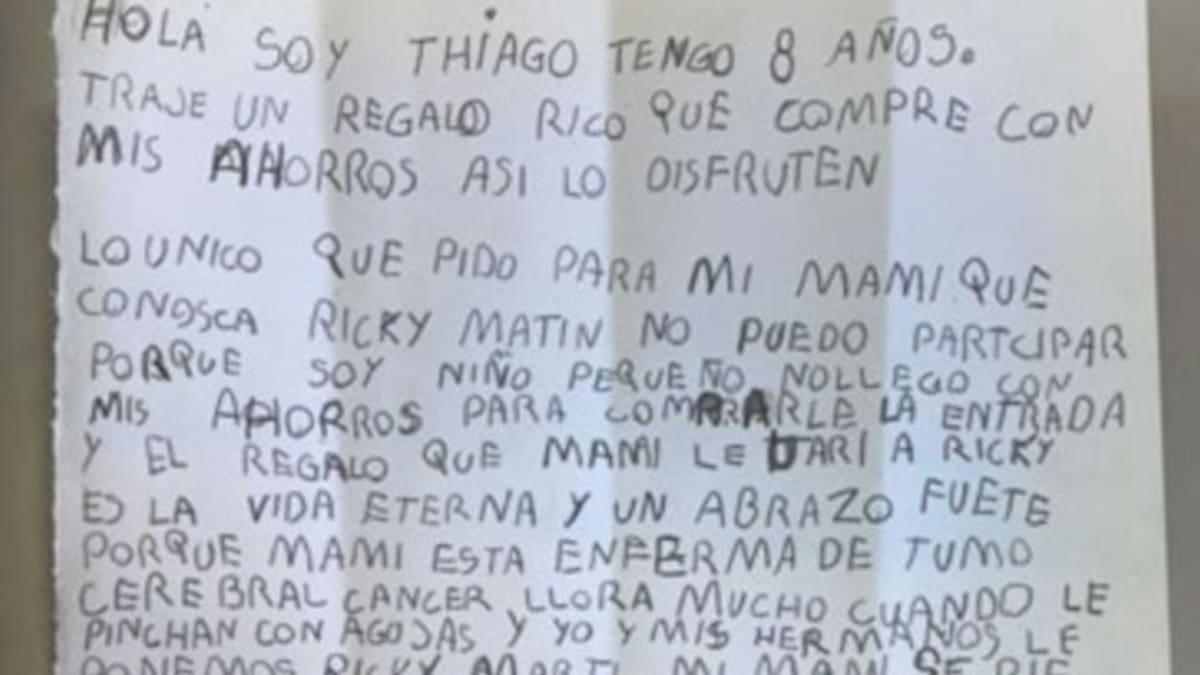 HOLA SOY THIAGO TENGO 8 AÑOS.
TRAJE UN REGALO RICO QUE COMPRE CON
MIS AHORROS ASI LO DISFRUTEN
LO UNICO QUE PIDO PARA MI MAMI QUE
CONOSCA RICKY MATIN NO PUEDO PARTCIPAR
PORQUE SOY NIÑO PEQUEÑO NO LLEGO CON
MIS AHORROS PARA COMPRARLE LA ENTRADA
Y EL REGALO QUE MAMI LE DARI A RICKY
ES LA VIDA ETERNA Y UN ABRAZO FUETE
PORQUE MAMI ESTA ENFERMA DE TUMO
CEREBRAL CANCER, LLORA MUCHO CUANDO LE
PINCHAN CON AGOJAS Y YO Y MIS HERMANOS LE
PONEMOS RICKY MARTI MI MAMI SE RIE